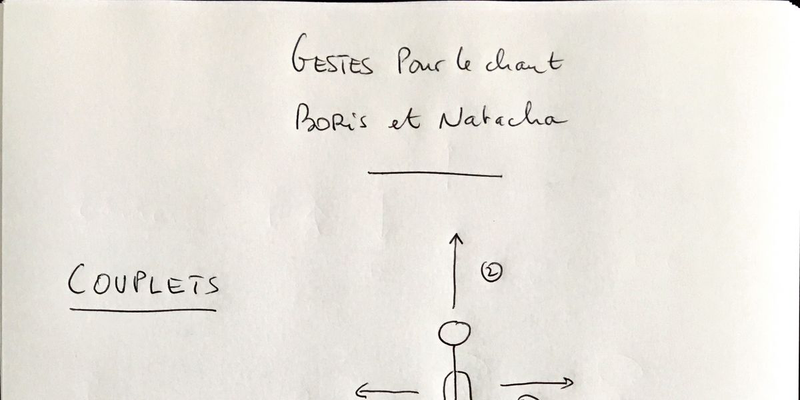 GESTES Pour le chant
BORis et Natacha
COUPLETS
②